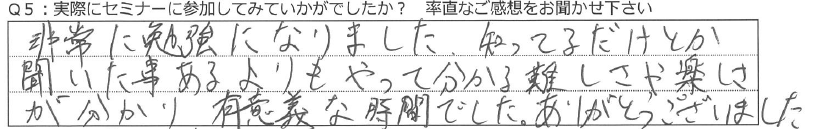 Q5：実際にセミナーに参加してみていかがでしたか？　率直なご感想をお聞かせ下さい
非常に勉強になりました。知ってるだけとか
聞いた事あるよりもやって分かる難しさや楽しさ
が分かり有意義な時間でした。ありがとうございました